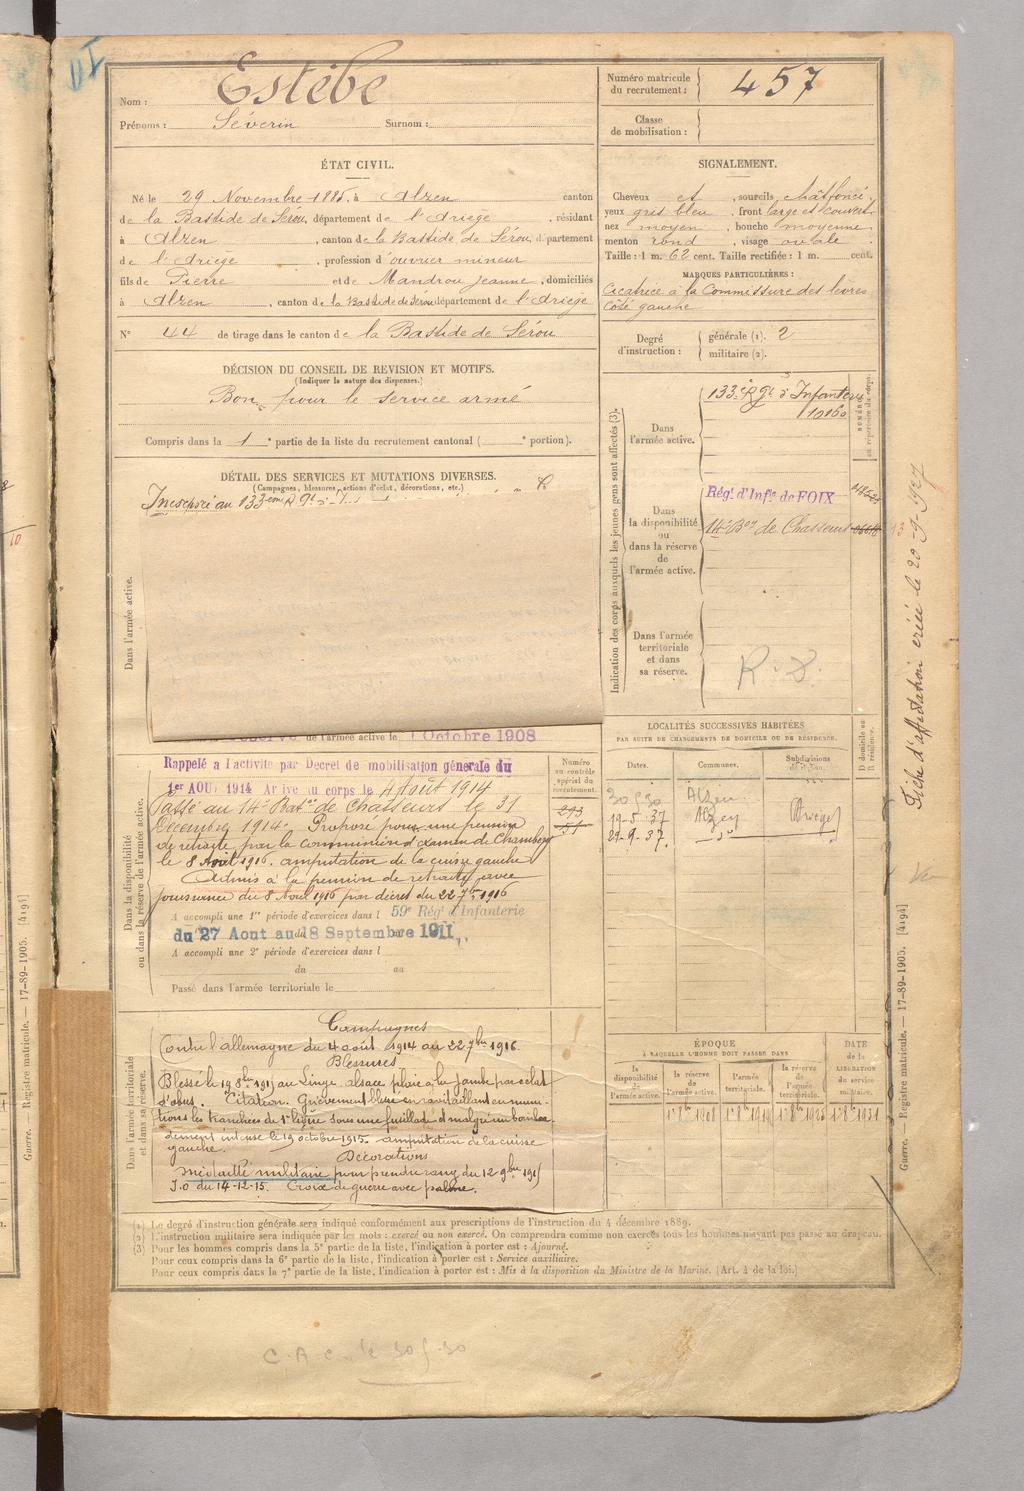 VI
Nom : Estèbe
Prénoms : Séverin Surnom :
Numéro matricule du recrutement : 457
Classe de mobilisation :
ÉTAT CIVIL.
Né le 29 Novembre 1885, à Alzen canton
de la Bastide de Sérou, département de l'Ariège, résidant
à Alzen, canton de la Bastide de Sérou, département
de l'Ariège, profession d'ouvrier mineur
fils de Pierre et de Mandrou Jeanne, domiciliés
à Alzen, canton de la Bastide de Sérou département de l'Ariège
N° 44 de tirage dans le canton de la Bastide de Sérou
SIGNALEMENT.
Cheveux et, sourcils chât foncé,
yeux gris bleu, front large et couvert,
nez moyen, bouche moyenne
menton rond, visage ovale.
Taille : 1 m. 62 cent. Taille rectifiée : 1 m. cent.
MARQUES PARTICULIÈRES :
Cicatrice à la Commissure des lèvres
côté gauche
Degré d'instruction : générale (1). 2
militaire (2).
DÉCISION DU CONSEIL DE REVISION ET MOTIFS.
(Indiquer la nature des dispenses.)
Bon pour le service armé
Compris dans la 1e partie de la liste du recrutement cantonal ( e portion).
DÉTAIL DES SERVICES ET MUTATIONS DIVERSES.
(Campagnes, blessures, actions d'éclat, décorations, etc.)
Incorporé au 133eme Rgt d'I
Dans l'armée active.
de l'armée active le 1 Octobre 1908
Dans la disponibilité ou dans la réserve de l'armée active.
Rappelé à l'activité par Décret de mobilisation générale du
1er AOUT 1914 Arrivé au corps le 4 Août 1914
Passé au 14e Baton de Chasseurs le 31
Décembre 1914. Proposé pour une pension
de retraite par la commission d'examen de Chambéry
le 8 Avril 1916. amputation de la cuisse gauche
Admis à la pension de retraite avec
jouissance du 8 Avril 1916 par décret du 22 7bre 1916
A accompli une 1re période d'exercices dans l 59e Régt d'Infanterie
du 27 Aout au 18 Septembre 1911
A accompli une 2e période d'exercices dans l
du au
Passé dans l'armée territoriale le
Numéro au contrôle spécial du recrutement.
293
Dans l'armée territoriale et dans sa réserve.
Campagnes
Contre l'allemagne du 4 août 1914 au 22 7bre 1916.
Blessures
Blessé le 19 8bre 1915 au Linge. alsace plaie à la jambe par eclat
d'obus. Citation. Grièvement blessé en ravitaillant en muni-
tions les tranchées de 1e ligne sous une fusillade et malgré un bombar-
dement intense le 19 octobre 1915. amputation de la cuisse
gauche.
Décorations
Médaille militaire pour prendre rang du 12 9bre 1915
J.O du 14-12-15. Croix de guerre avec palme.
Indication des corps auxquels les jeunes gens sont affectés (3).
Dans l'armée active.
133e Rgt d'Infanterie
10160
NUMÉROS au répertoire du corps.
Dans la disponibilité ou dans la réserve de l'armée active.
Régt d'Infie de FOIX
14e Bon de Chasseurs
13
Dans l'armée territoriale et dans sa réserve.
R. 8.
LOCALITÉS SUCCESSIVES HABITÉES
PAR SUITE DE CHANGEMENTS DE DOMICILE OU DE RÉSIDENCE.
Dates. Communes. Subdivisions de région. D domicile ou R résidence.
30 5 30 Alzen
19-5-37 Alzen Ariège
29-9.37. — d° —
ÉPOQUE
À LAQUELLE L'HOMME DOIT PASSER DANS
la disponibilité de l'armée active. la réserve de l'armée active. l'armée territoriale. la réserve de l'armée territoriale.
DATE de la LIBÉRATION du service militaire.
1er 8bre 1908 1er 8bre 1919 1er 8bre 1925 1er 8bre 1931
(1) Le degré d'instruction générale sera indiqué conformément aux prescriptions de l'instruction du 4 décembre 1889.
(2) L'instruction militaire sera indiquée par les mots : exercé ou non exercé. On comprendra comme non exercés tous les hommes n'ayant pas passé au drapeau.
(3) Pour les hommes compris dans la 5e partie de la liste, l'indication à porter est : Ajourné.
Pour ceux compris dans la 6e partie de la liste, l'indication à porter est : Service auxiliaire.
Pour ceux compris dans la 7e partie de la liste, l'indication à porter est : Mis à la disposition du Ministre de la Marine. (Art. 4 de la loi.)
C.A.C. le 30 5-30
Fiche d'affectation créée le 20-9-1927
Guerre. — Registre matricule. — 17-89-1905. [4194]
Guerre. — Registre matricule. — 17-89-1905. [4194]